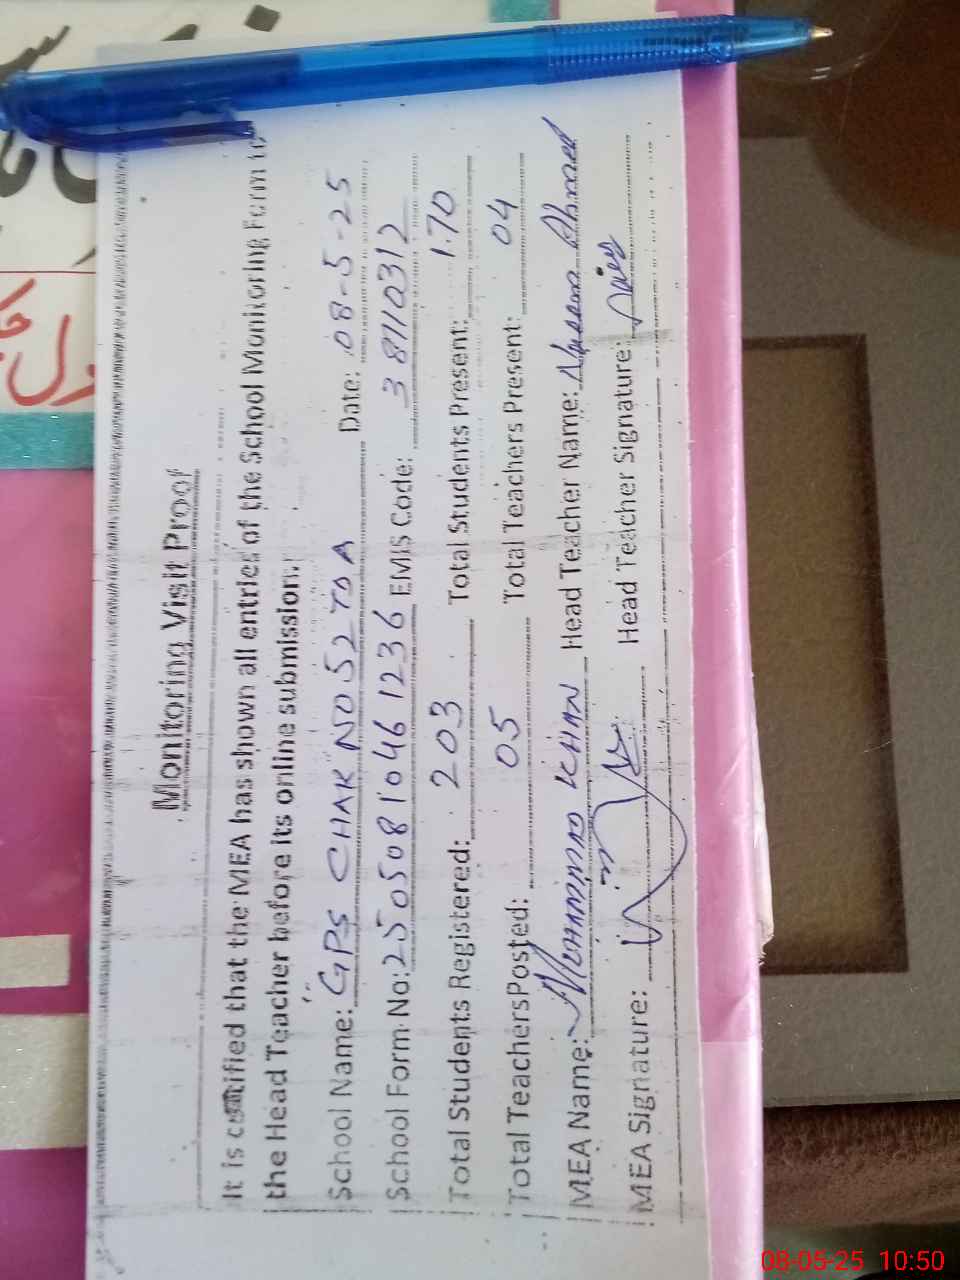 Monitoring Visit Proof
It is certified that the MEA has shown all entries of the School Monitoring Form to
the Head Teacher before its online submission.
School Name: GPS CHAK NO 52 TDA Date: 08-5-25
School Form No: 2505081046 1236 EMIS Code: 38110312
Total Students Registered: 203 Total Students Present: 170
Total Teachers Posted: 05 Total Teachers Present: 04
MEA Name: MUHAMMAD KHAN Head Teacher Name: Ahmed
MEA Signature: Head Teacher Signature:
08-05-25 10:50